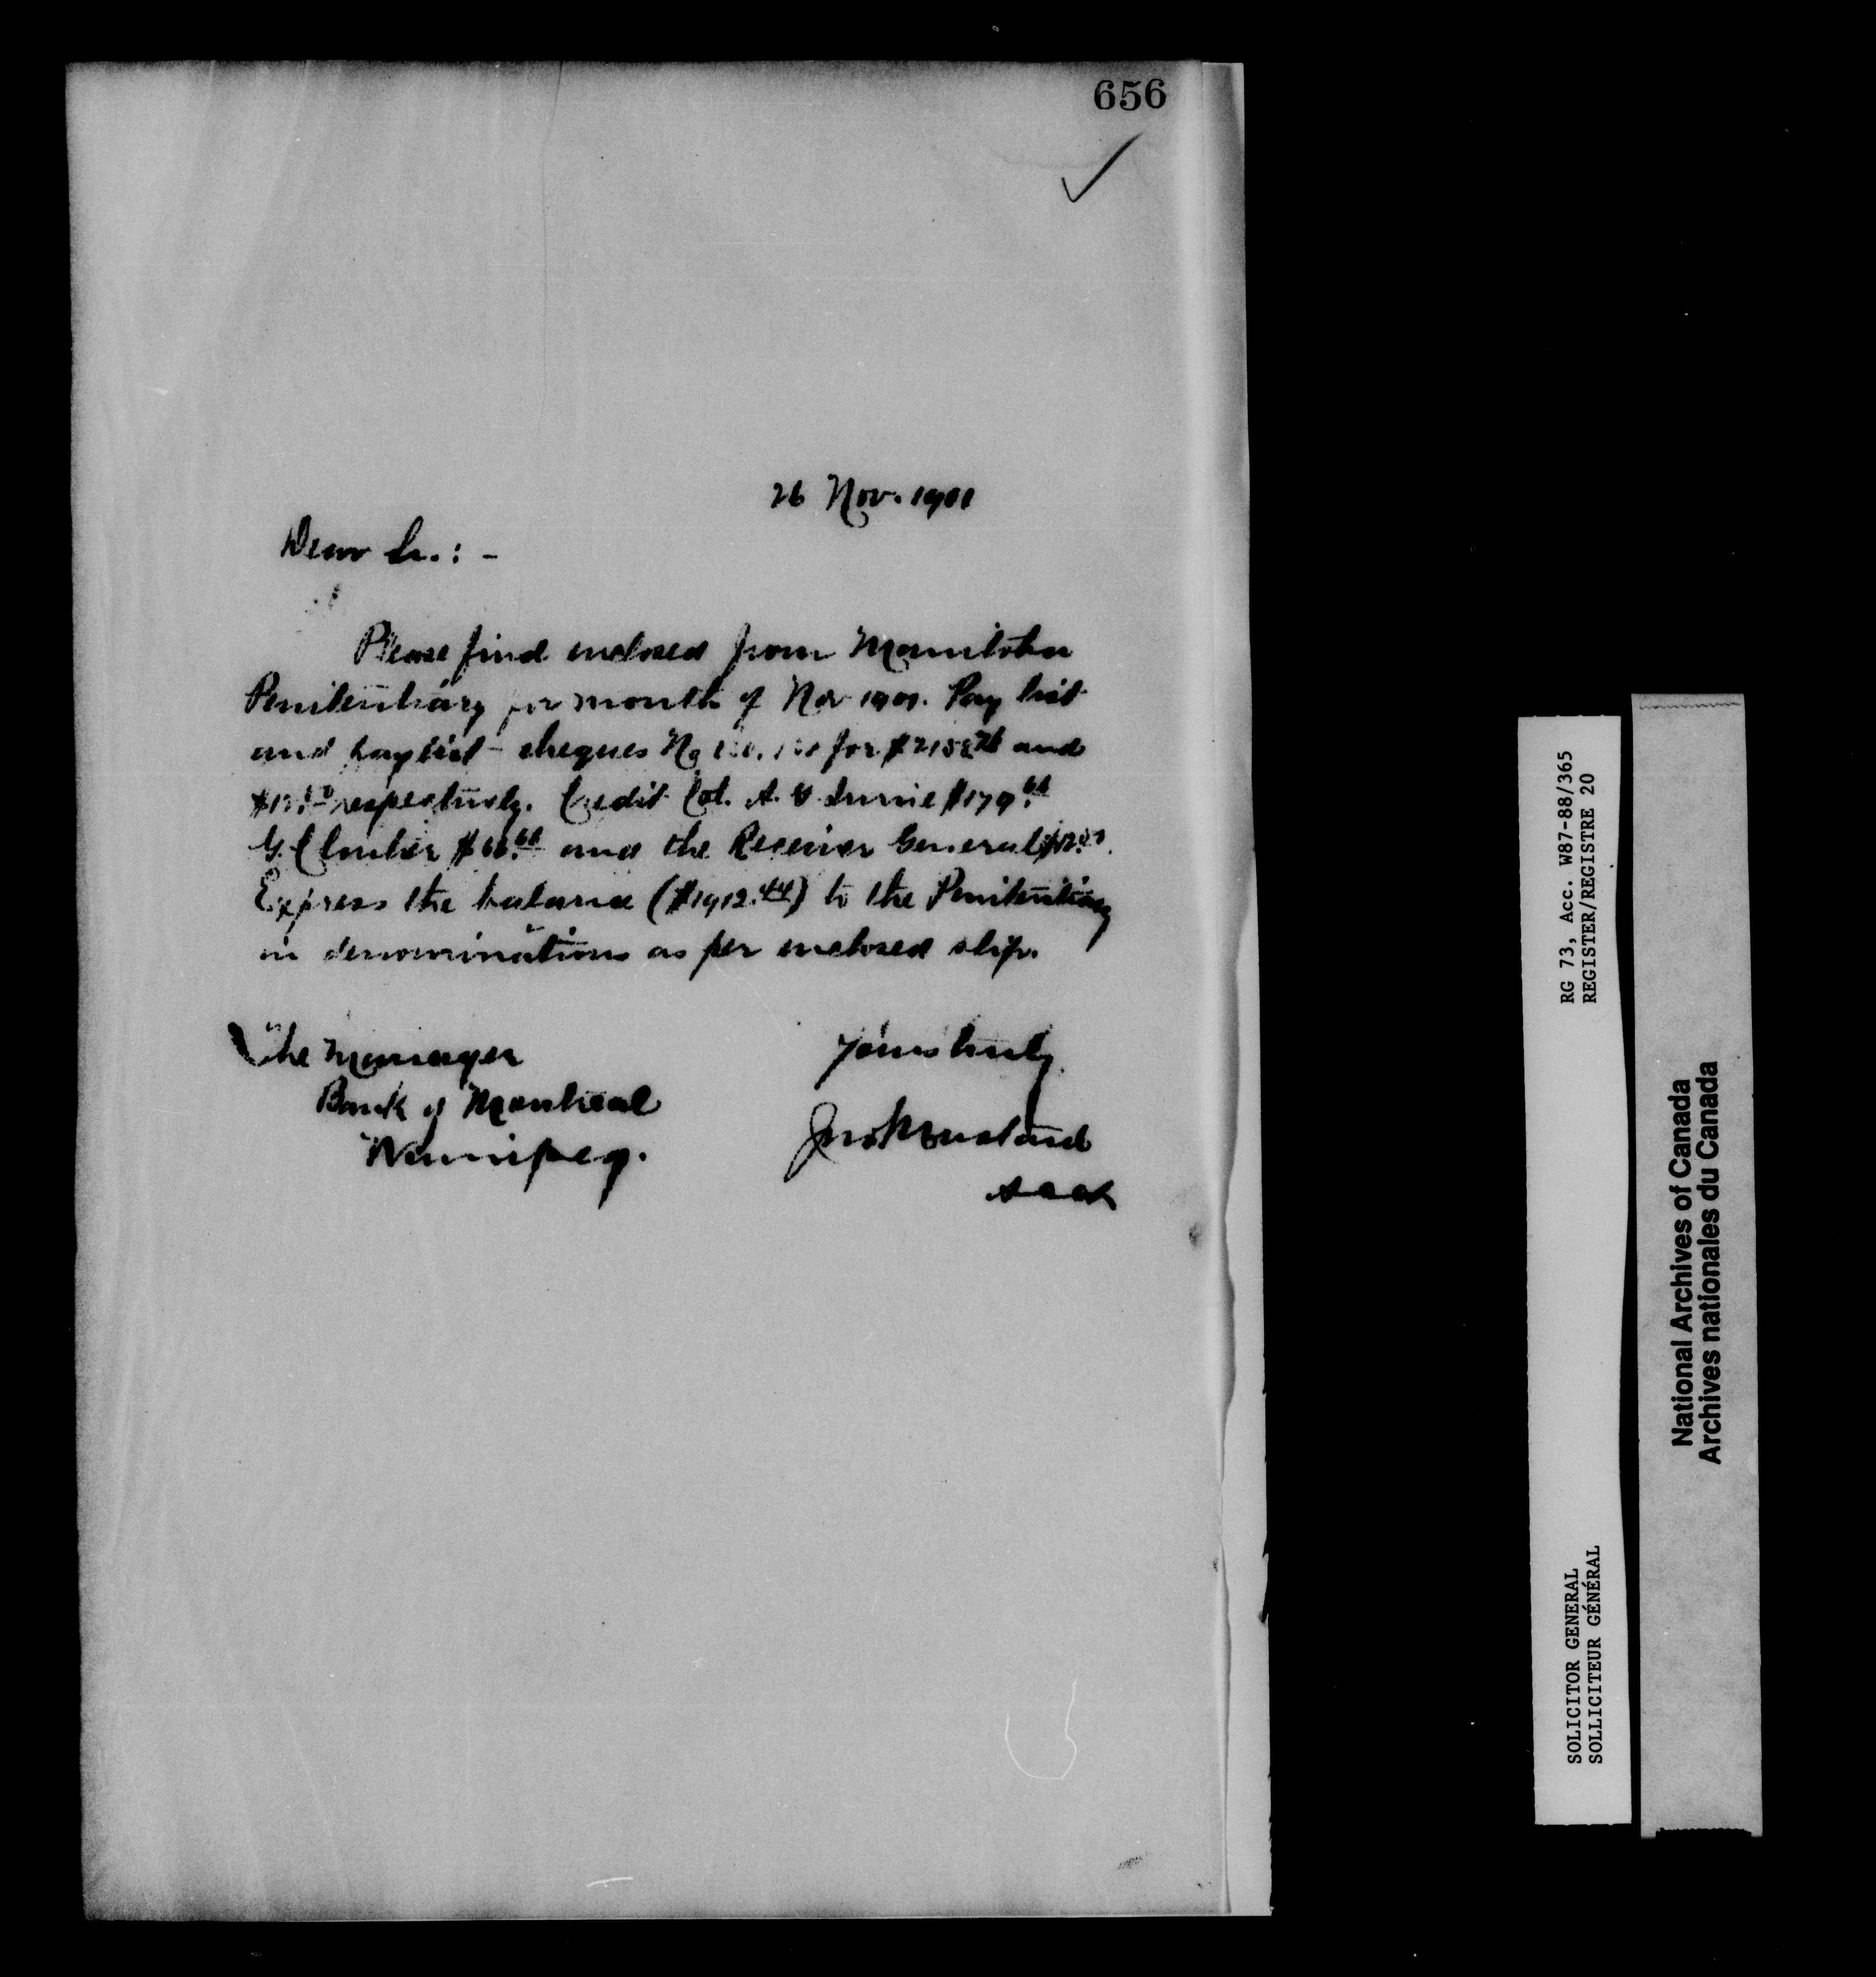 656
26 Nov. 1901
Dear Sir.: -
Please find enclosed from Manitoba
Penitentiary for month of Nov 1901. Pay list
and paylist cheques No for $2158.76 and
respectively. Credit Col. A. G. Irvine $179.66
G. $66.66 and the Receiver General
Express the balance ($1912.44) to the Penitentiary
in denominations as per enclosed slip.
The Manager
Bank of Montreal
Winnipeg.
Yours truly,
RG 73, Acc. W87-88/365
REGISTER/REGISTRE 20
SOLICITOR GENERAL
SOLLICITEUR GÉNÉRAL
National Archives of Canada
Archives nationales du Canada